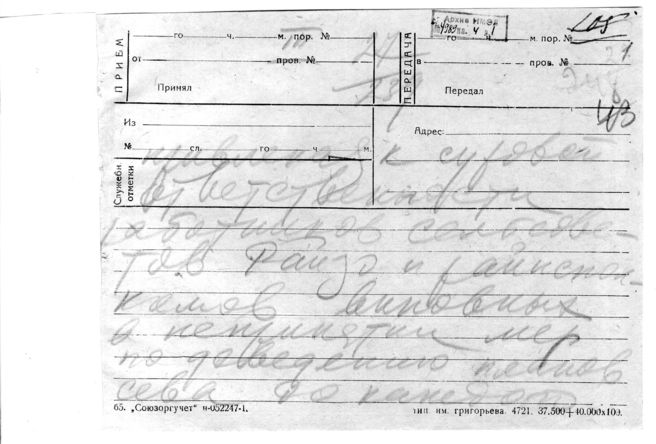 Архив ИМЭЛ
го ч. м. пор. №
го ч. м. пор. №
ПРИЕМ
от пров. №
Принял
ПЕРЕДАЧА
в пров. № 21
Передал
43
Из
Адрес:
№ сл. го ч. м.
Служебн отметки
к суровой
ответственности
работников сельсове-
тов Райзо и райиспол-
комов виновных
в непринятии мер
по доведению планов
сева до
65. „Союзоргучет" н-052247-1.
тип им. григорьева. 4721. 37.500+40.000х100.